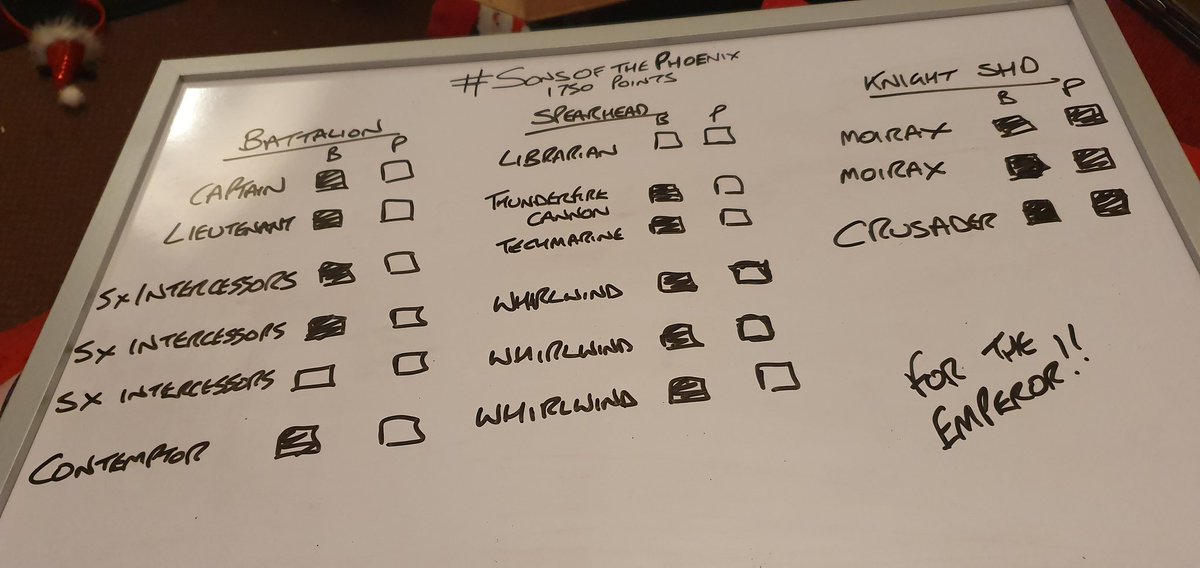 #SONS OF THE PHOENIX
1750 POINTS
BATTALION
B P
CAPTAIN
LIEUTENANT
5X INTERCESSORS
5X INTERCESSORS
5X INTERCESSORS
CONTEMPTOR
SPEARHEAD
B P
LIBRARIAN
THUNDERFIRE
CANNON
TECHMARINE
WHIRLWIND
WHIRLWIND
WHIRLWIND
KNIGHT SHD
B P
MOIRAX
MOIRAX
CRUSADER
FOR THE
EMPEROR!!